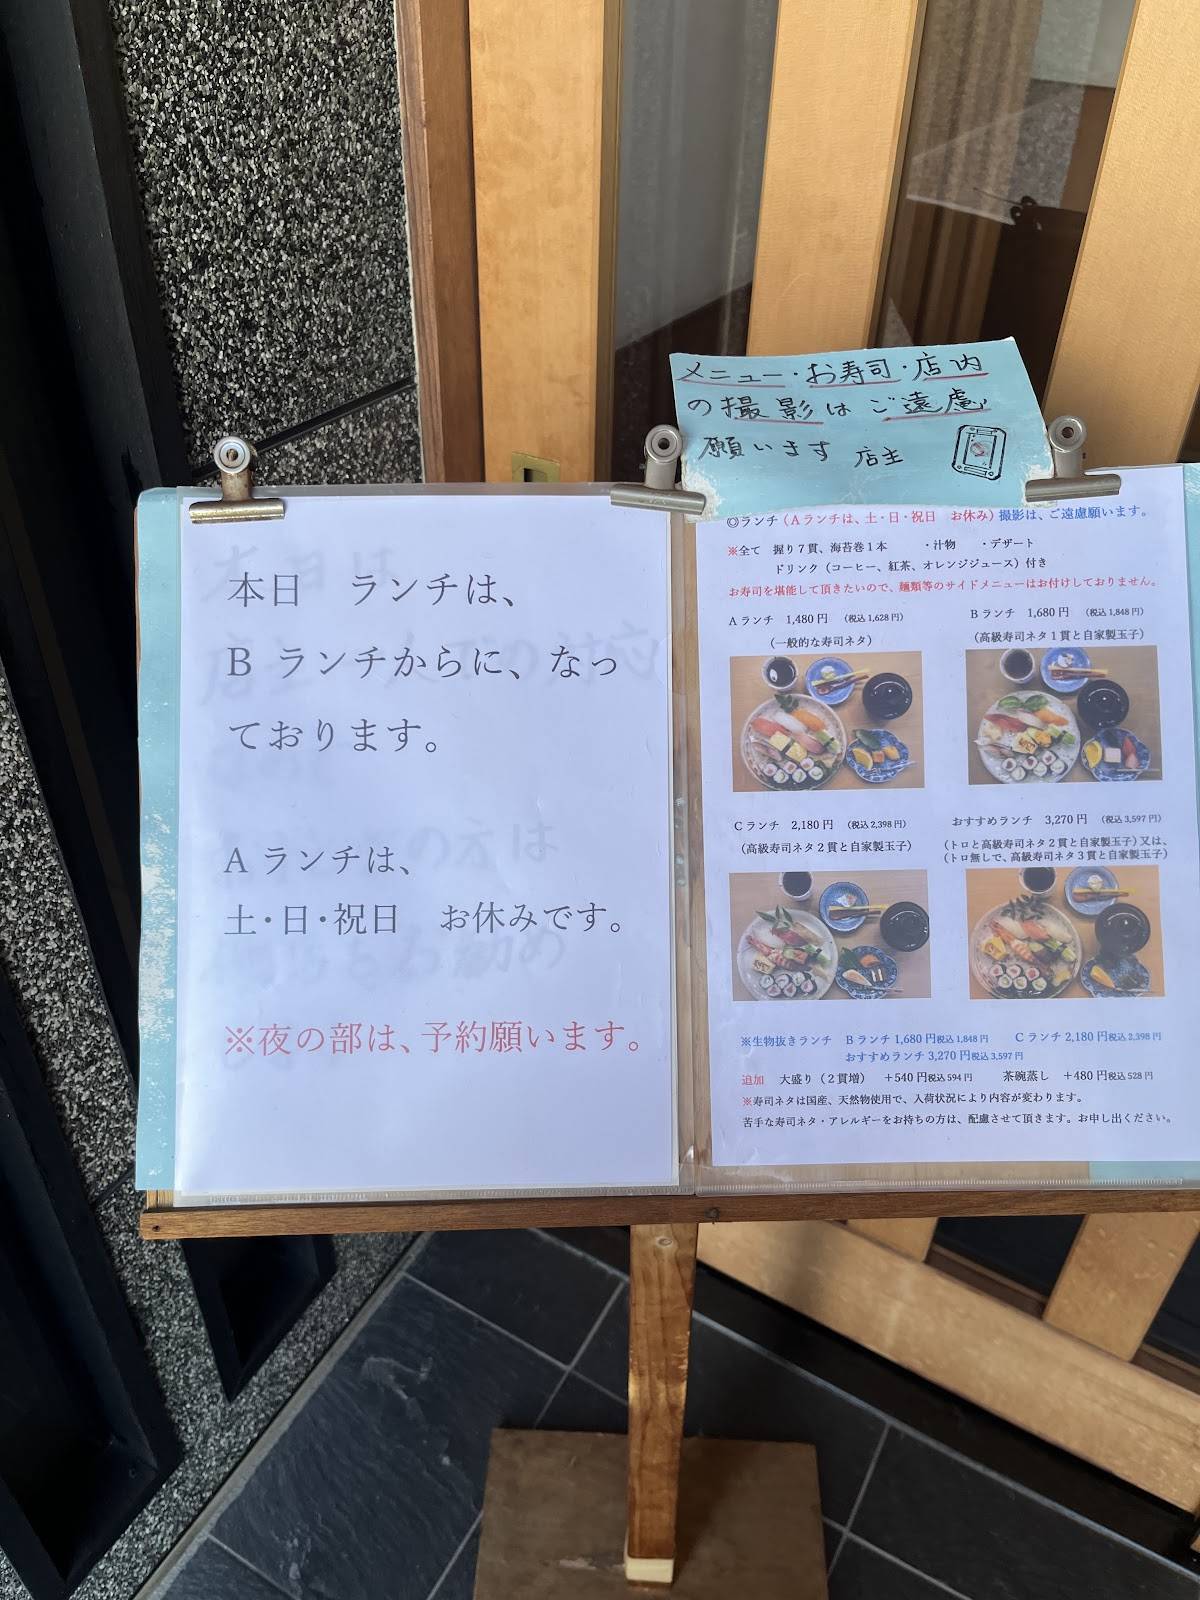 メニュー・お寿司・店内
の撮影はご遠慮
願います 店主
本日 ランチは、
B ランチからに、なっ
ております。
A ランチは、
土・日・祝日 お休みです。
※夜の部は、予約願います。
◎ランチ（Aランチは、土・日・祝日 お休み）撮影は、ご遠慮願います。
※全て 握り７貫、海苔巻１本 ・汁物 ・デザート
ドリンク（コーヒー、紅茶、オレンジジュース）付き
お寿司を堪能して頂きたいので、麺類等のサイドメニューはお付けしておりません。
Aランチ 1,480円 （税込1,628円）
（一般的な寿司ネタ）
Bランチ 1,680円 （税込1,848円）
（高級寿司ネタ１貫と自家製玉子）
Cランチ 2,180円 （税込2,398円）
（高級寿司ネタ２貫と自家製玉子）
おすすめランチ 3,270円 （税込3,597円）
（トロと高級寿司ネタ２貫と自家製玉子）又は、
（トロ無しで、高級寿司ネタ３貫と自家製玉子）
※生物抜きランチ Bランチ1,680円税込1,848円 Cランチ2,180円税込2,398円
おすすめランチ3,270円税込3,597円
追加 大盛り（２貫増） ＋540円税込594円 茶碗蒸し ＋480円税込528円
※寿司ネタは国産、天然物使用で、入荷状況により内容が変わります。
苦手な寿司ネタ・アレルギーをお持ちの方は、配慮させて頂きます。お申し出ください。